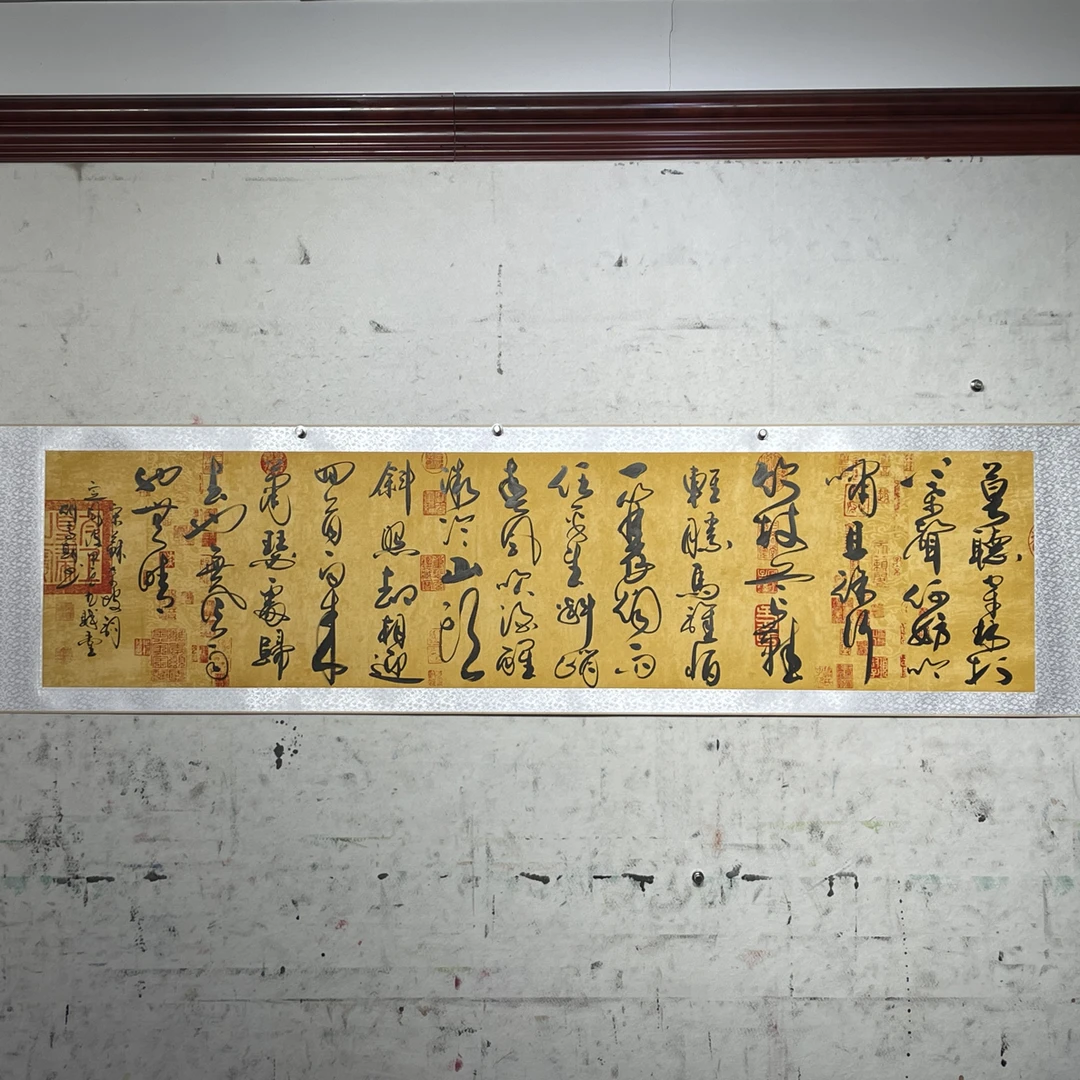 莫聽穿林打
葉聲何妨吟
嘯且徐行
竹杖芒鞋
輕勝馬誰怕
一蓑煙雨
任平生料峭
春風吹酒醒
微冷山頭
斜照卻相迎
回首向來
蕭瑟處歸
去也無風雨
也無晴
宋蘇東坡詞